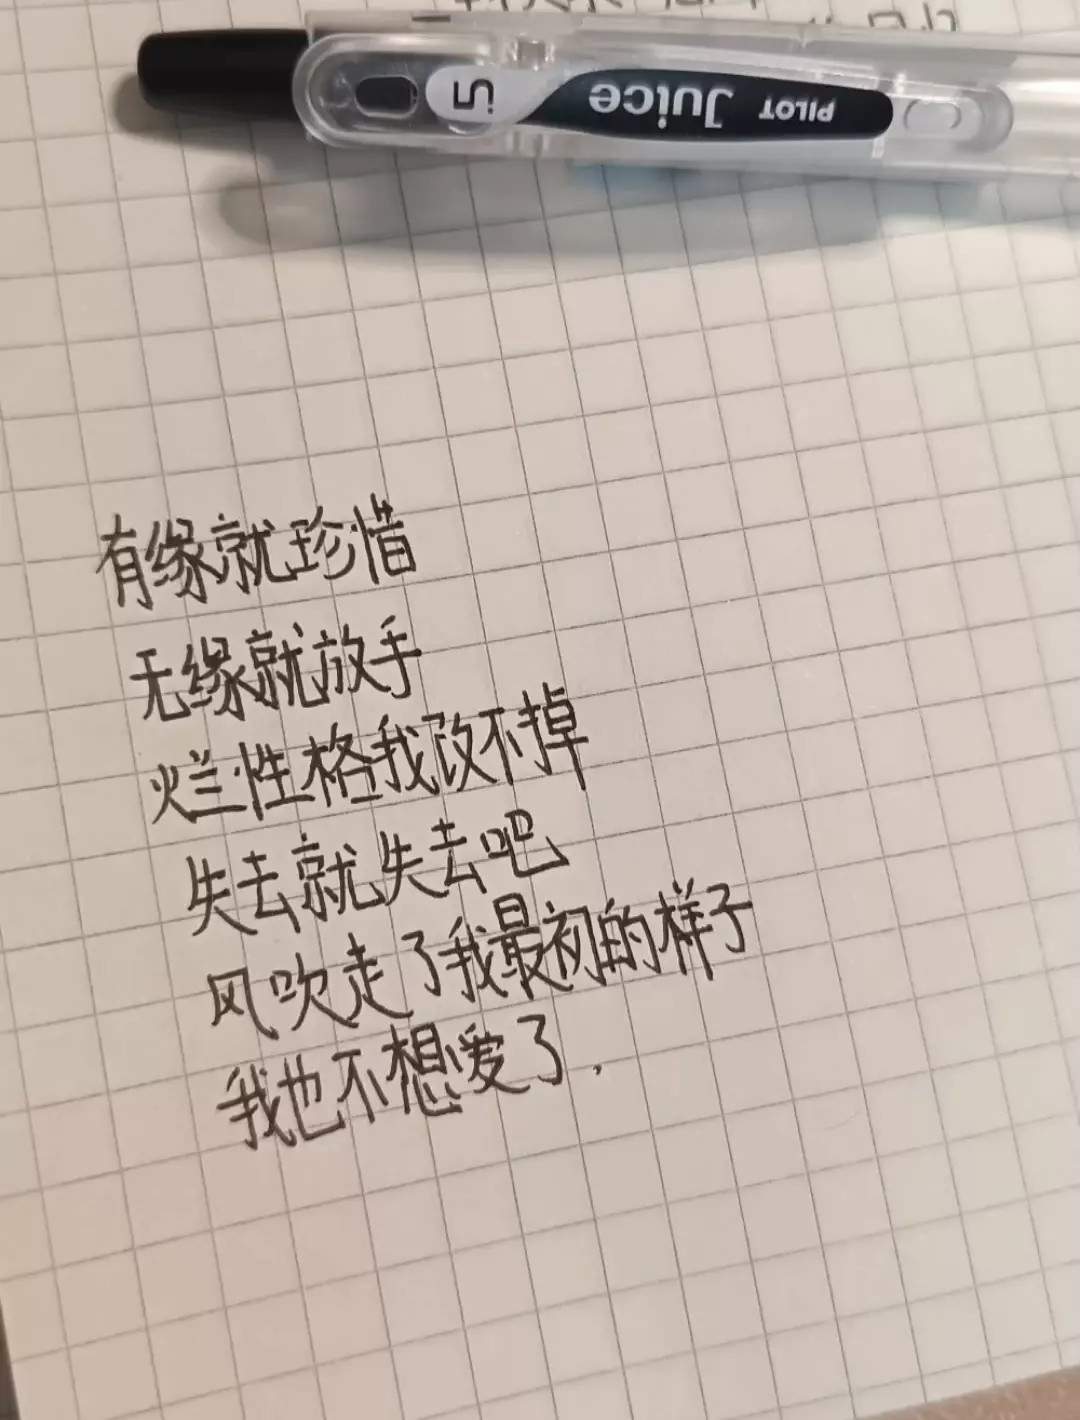 PILOT Juice 05
有缘就珍惜
无缘就放手
烂性格我改不掉
失去就失去吧
风吹走了我最初的样子
我也不想爱了.